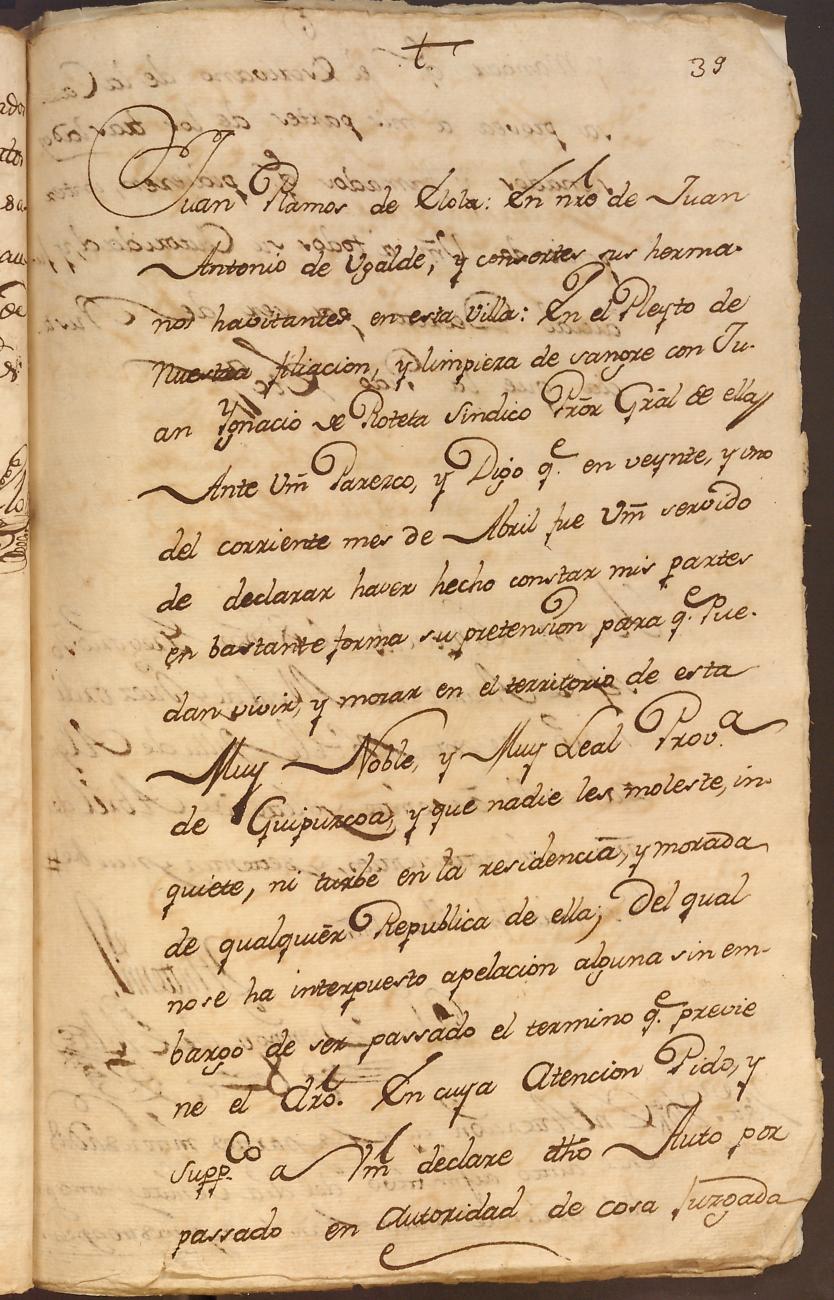 39
Juan Ramos de Elola: En nr̃e de Juan
Antonio de Ugalde, y consortes sus herma-
nos habitantes, en esta Villa: En el Pleyto de
Nuestra filiacion, y limpieza de sangre con Ju-
an Ygnacio de Roteta Sindico Prõr Grãl de ella
Ante Vm̃ Parezco, y Digo q.e en veynte, y uno
del corriente mes de Abril fue Vm̃ servido
de declarar haver hecho constar mis partes
en bastante forma su pretension para q.e Pue-
dan vivir, y morar en el territorio de esta
Muy Noble, y Muy Leal Prov.a
de Guipuzcoa, y que nadie les moleste, in-
quiete, ni turbe en la residencia, y morada
de qualquier Republica de ella; Del qual
no se ha interpuesto apelacion alguna sin em-
bargo de ser passado el termino q.e previe
ne el dr̃o. En cuya Atencion Pido, y
supp.co a Vm̃ declare dh̃o Auto por
passado en Autoridad de cosa Juzgada